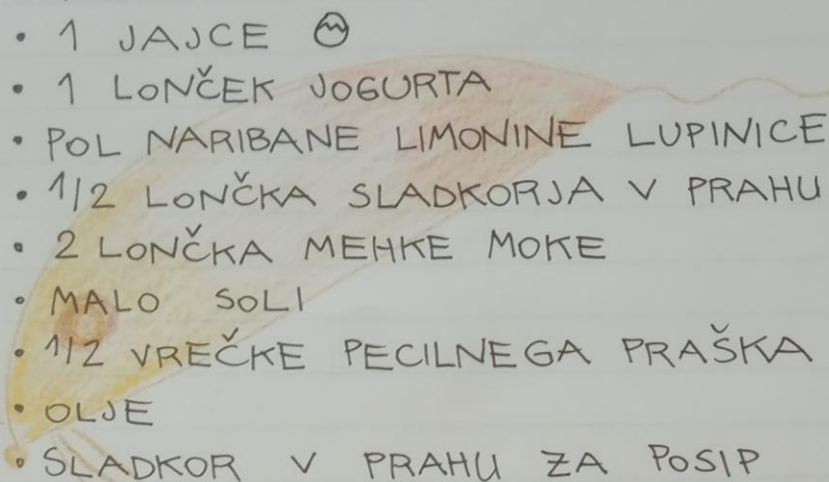 • 1 JAJCE
• 1 LONČEK JOGURTA
• POL NARIBANE LIMONINE LUPINICE
• 1/2 LONČKA SLADKORJA V PRAHU
• 2 LONČKA MEHKE MOKE
• MALO SOLI
• 1/2 VREČKE PECILNEGA PRAŠKA
• OLJE
• SLADKOR V PRAHU ZA POSIP